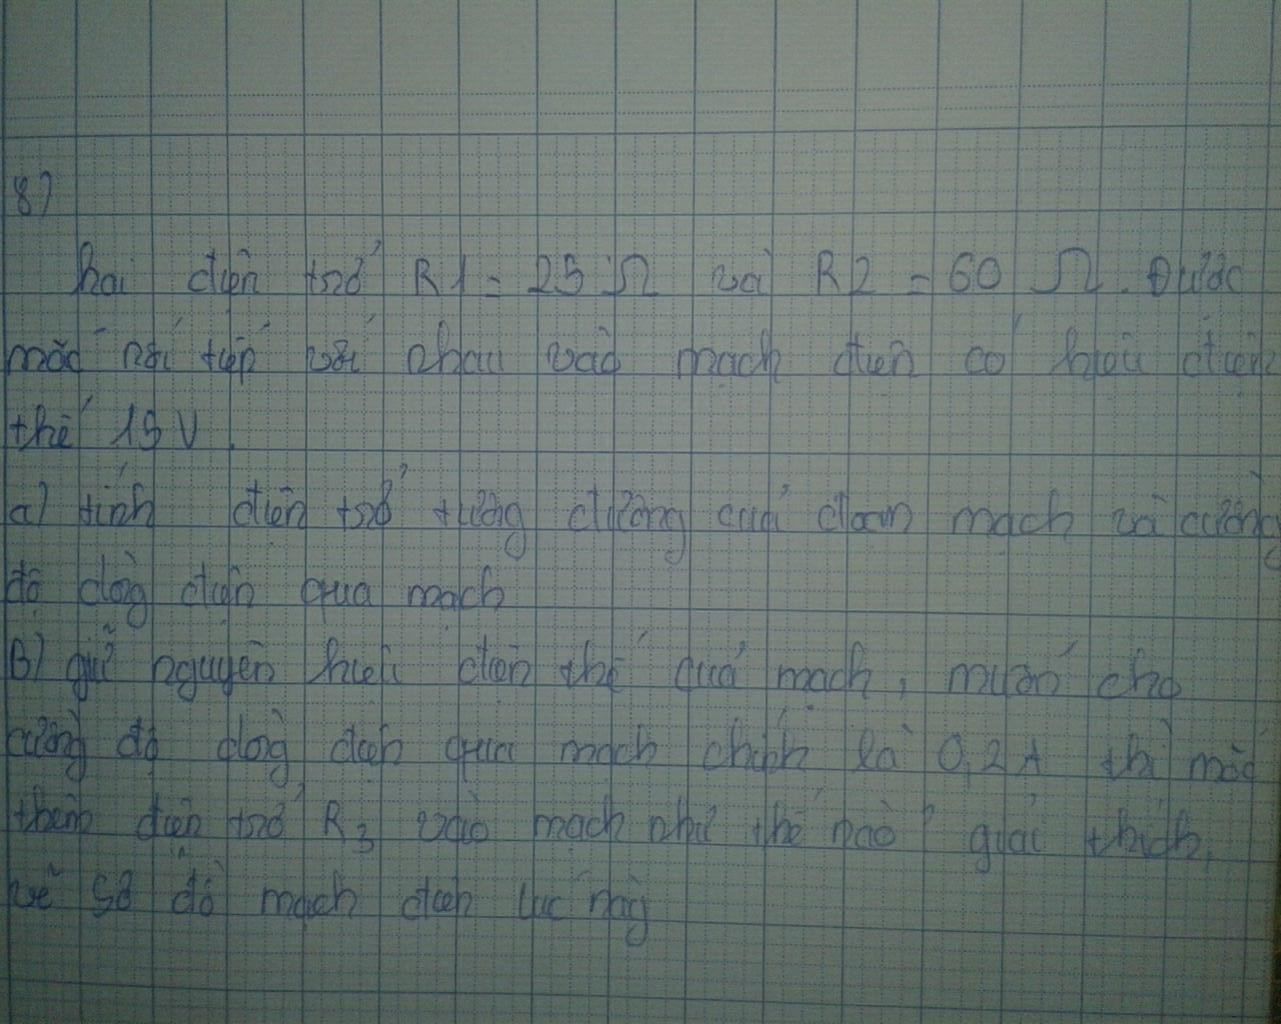 8)
hai điện trở R1 = 25 Ω và R2 = 60 Ω. Được
mắc nối tiếp với nhau vào mạch điện có hiệu điện
thế 15V.
a) tính điện trở tương đương của đoạn mạch và cường
độ dòng điện qua mạch
B) giữ nguyên hiệu điện thế quá mạch, muốn cho
cường độ dòng điện qua mạch chính là 0,2A thì mắc
thêm điện trở R3 vào mạch như thế nào? giải thích,
vẽ sơ đồ mạch điện lúc này